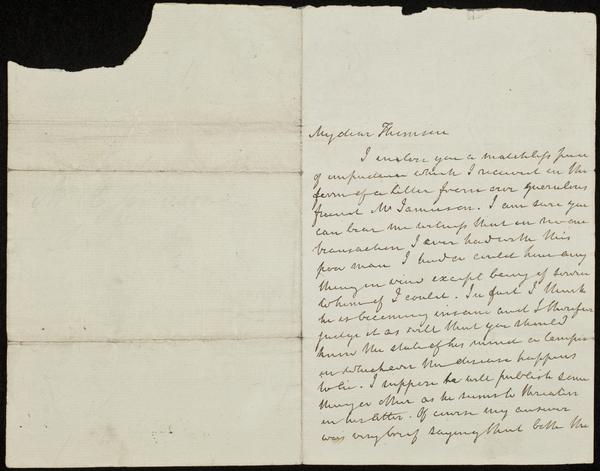 My dear Thomson
I inclose you a matchless piece
of impudence which I received in the
form of a letter from our querulous
friend Mr Jamieson. I am sure you
can bear me witness that in no one
transaction I ever had with this
poor man I had or could have any
thing in view except being of service
to him if I could. In fact I think
he is becoming insane and I therefore
judge it as well that you should
know the state of his mind or temper
in whichever the disease happens
to lie. I suppose he will publish some
thing or other as he seems to threaten
in his letter. Of course my answer
was very brief saying that both the